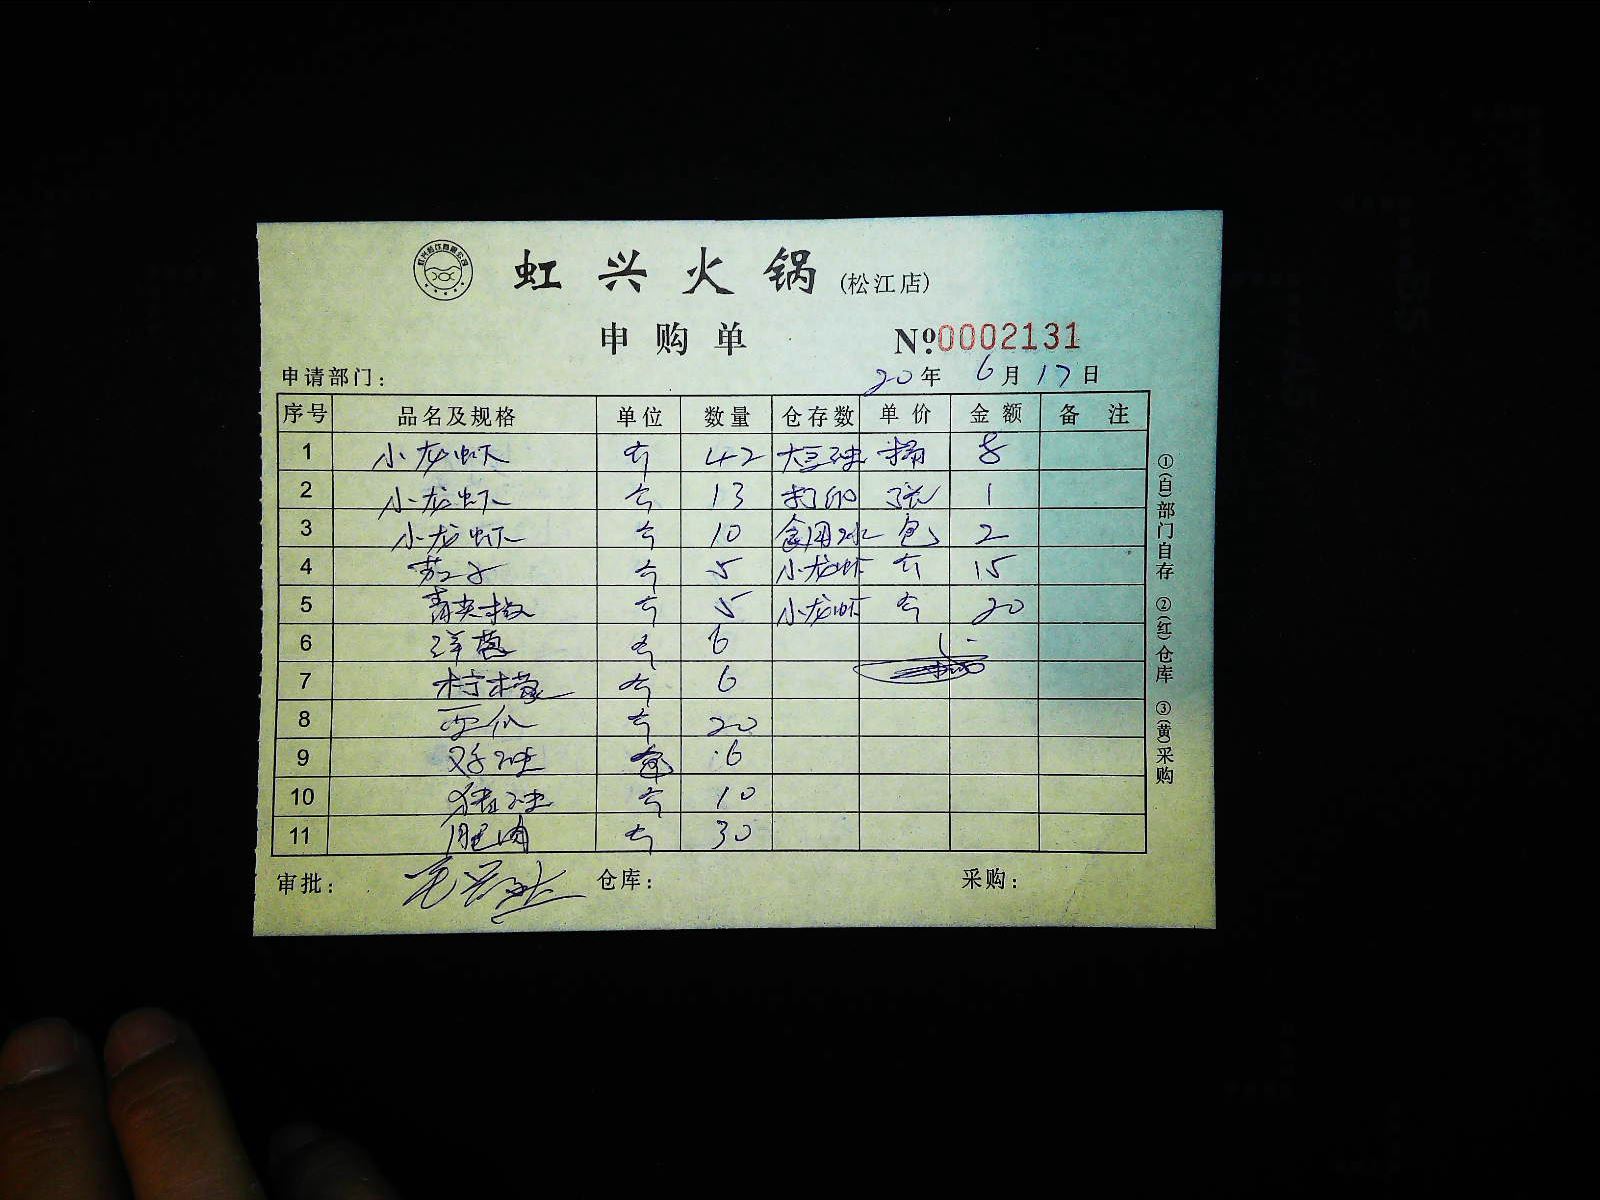 虹兴火锅 (松江店)
申购单 Nº0002131
申请部门： 20年 6月 17日
序号 品名及规格 单位 数量 仓存数 单价 金额 备注
1 小龙虾 斤 42 大豆油 桶 8
2 小龙虾 斤 13 打印 张 1
3 小龙虾 斤 10 食用冰 包 2
4 茄子 斤 5 小龙虾 斤 15
5 青尖椒 斤 5 小龙虾 斤 20
6 洋葱 斤 6
7 柠檬 斤 6
8 西瓜 斤 20
9 6
10 猪油 斤 10
11 肥肉 斤 30
审批： 仓库： 采购：
①(白)部门自存 ②(红)仓库 ③(黄)采购